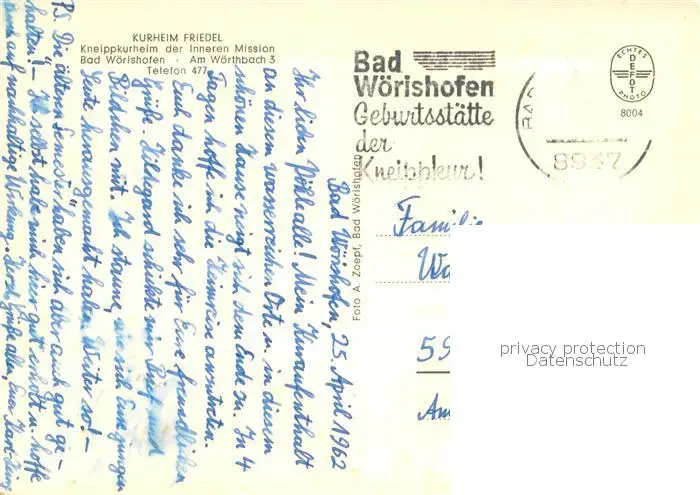 KURHEIM FRIEDEL
Kneippkurheim der Inneren Mission
Bad Wörishofen · Am Wörthbach 3
Telefon 477
Bad Wörishofen, 25. April 1962
Ihr lieben Pöhle alle! Mein Kuraufenthalt
an diesem wasserreichen Orte u. in diesem
schönen Hause neigt sich dem Ende zu. In 4
Tagen hoffe ich die Heimreise anzutreten.
Euch danke ich sehr für Eure freundlichen
Grüße. Hildegard schickte mir Brief und
Bildchen mit. Ich staune, wie sich Eure jungen
Leute herausgemacht haben. Weiter so! –
PS. Die älteren Semest. haben sich aber auch gut ge-
halten! – Ich selbst habe mich hier gut erholt u. hoffe
auch auf nachhaltige Wirkung. Herzl. Grüße allen, Euer Karl-Heinz
Foto A. Zoepf, Bad Wörishofen
Bad
Wörishofen
Geburtsstätte
der
Kneippkur!
8937
ECHTES
DEFOT
PHOTO
8004
Familie
Wa
59
Am
privacy protection
Datenschutz